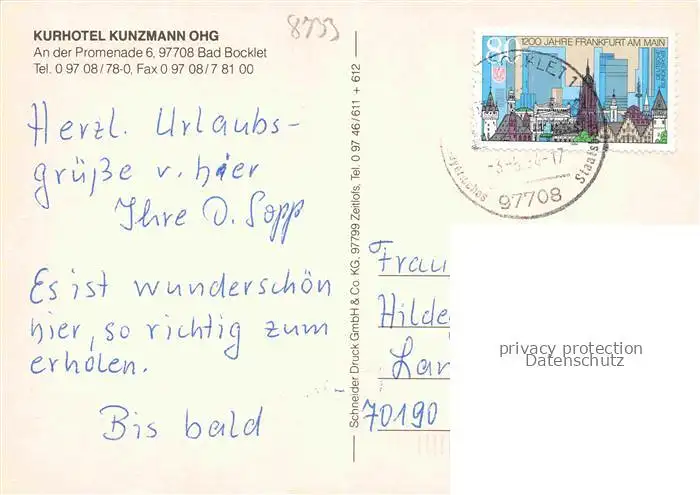 8733
KURHOTEL KUNZMANN OHG
An der Promenade 6, 97708 Bad Bocklet
Tel. 0 97 08 / 78-0, Fax 0 97 08 / 7 81 00
Herzl. Urlaubs-
grüße v. hier
Ihre D. Sopp
Es ist wunderschön
hier, so richtig zum
erholen.
Bis bald
Schneider Druck GmbH & Co. KG, 97799 Zeitlofs, Tel. 0 97 46 / 611 + 612
80
1200 JAHRE FRANKFURT AM MAIN
97708
Frau
Hilde
70190
privacy protection
Datenschutz